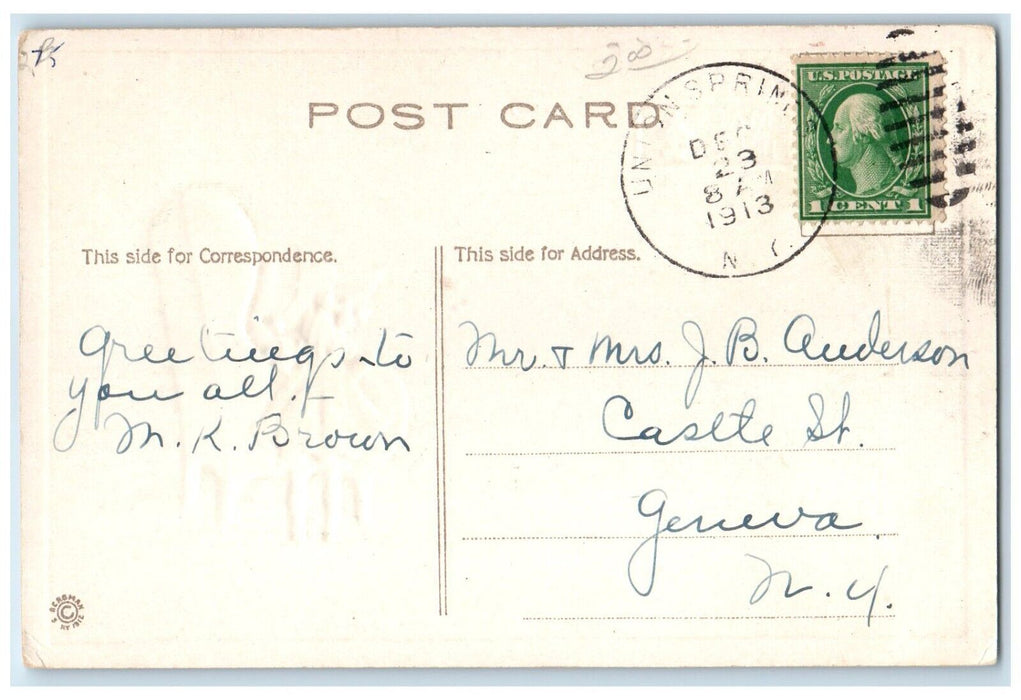 POST CARD
UNION SPRINGS
DEC
23
8 AM
1913
N.Y.
U.S. POSTAGE
1 CENT 1
This side for Correspondence.
This side for Address.
Greetings to
you all.
M. K. Brown
Mr. & Mrs. J. B. Anderson
Castle St.
Geneva
N. Y.
BERGMAN
©
NY 1912